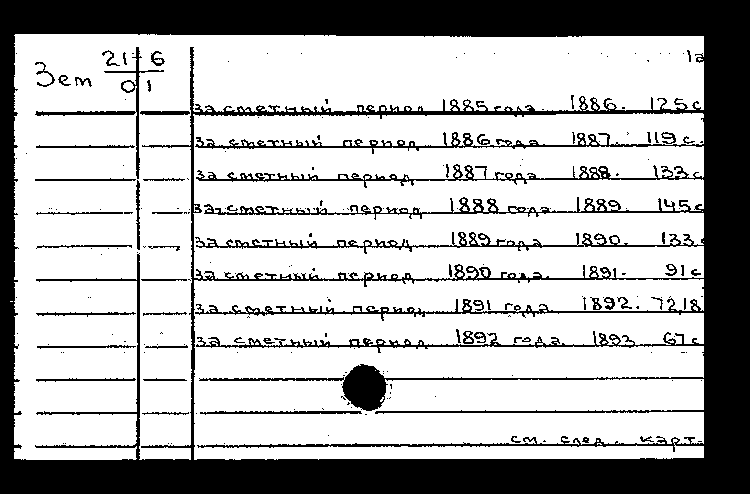 1а
Зем 21-6
01
За сметный период 1885 года 1886. 125 с
За сметный период 1886 года 1887. 119 с.
За сметный период 1887 года 1888. 133 с
За сметный период 1888 года 1889. 145 с
За сметный период 1889 года 1890. 133 с
За сметный период 1890 года. 1891. 91 с
За сметный период 1891 года 1892. 72,18
За сметный период 1892 года. 1893 67 с
см. след. карт.